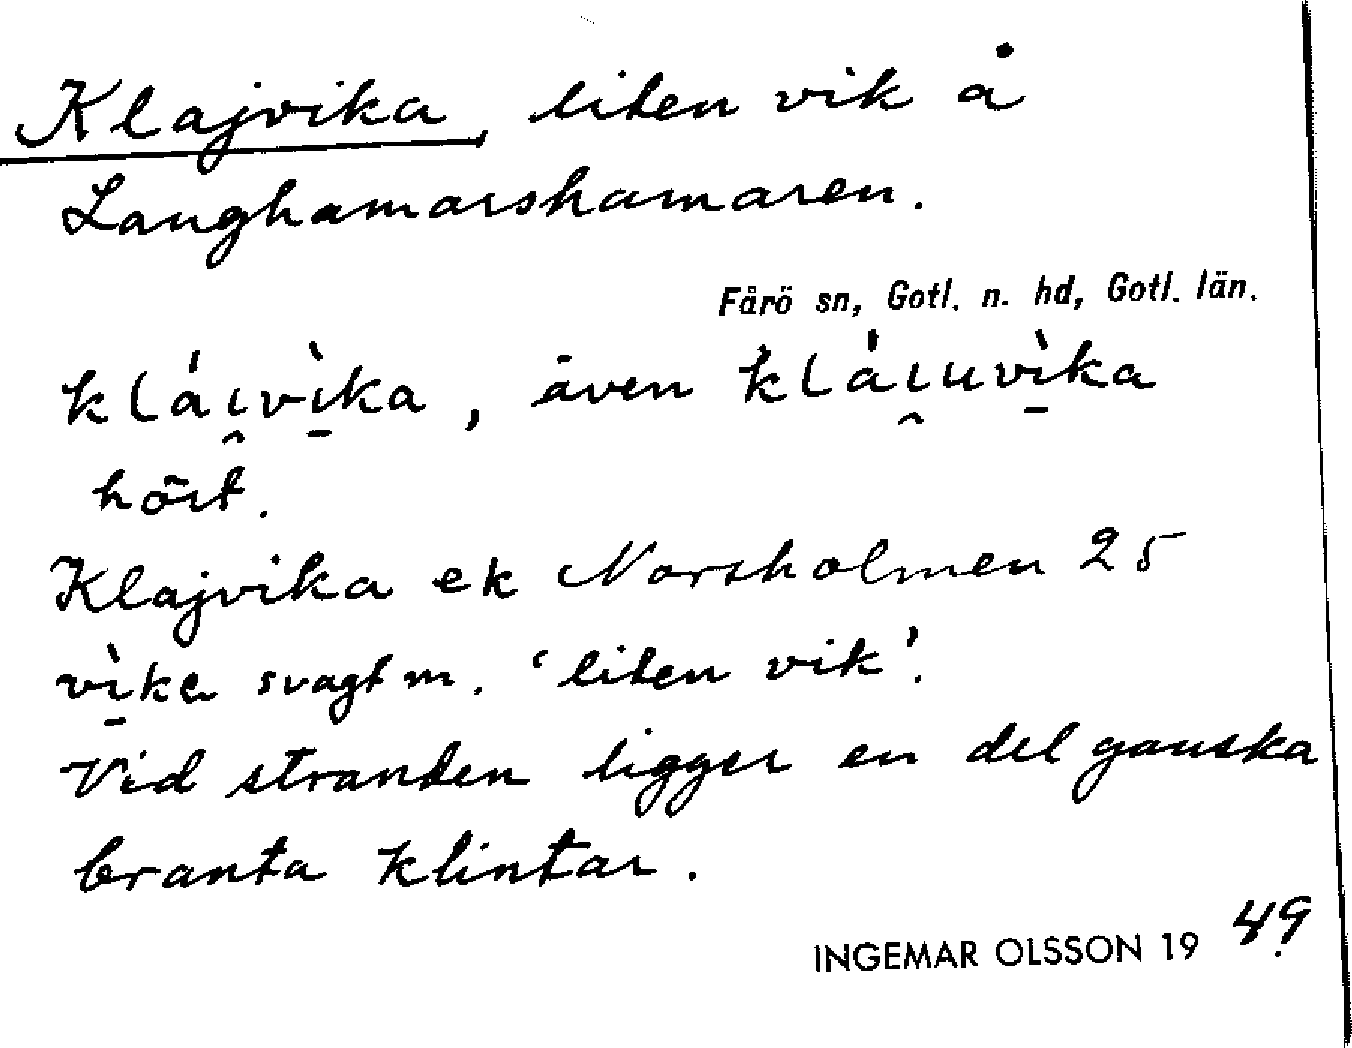 Klajvika, liten vik å
Langhamarshamaren.
Fårö sn, Gotl. n. hd, Gotl. län.
kláı̯vı̱̀ka, även kláı̯uvı̱̀ka
hört.
Klajvika ek Norsholmen 25
vı̱̀ka svagt m. ‘liten vik’.
Vid stranden ligger en del ganska
branta klintar.
INGEMAR OLSSON 19 49.